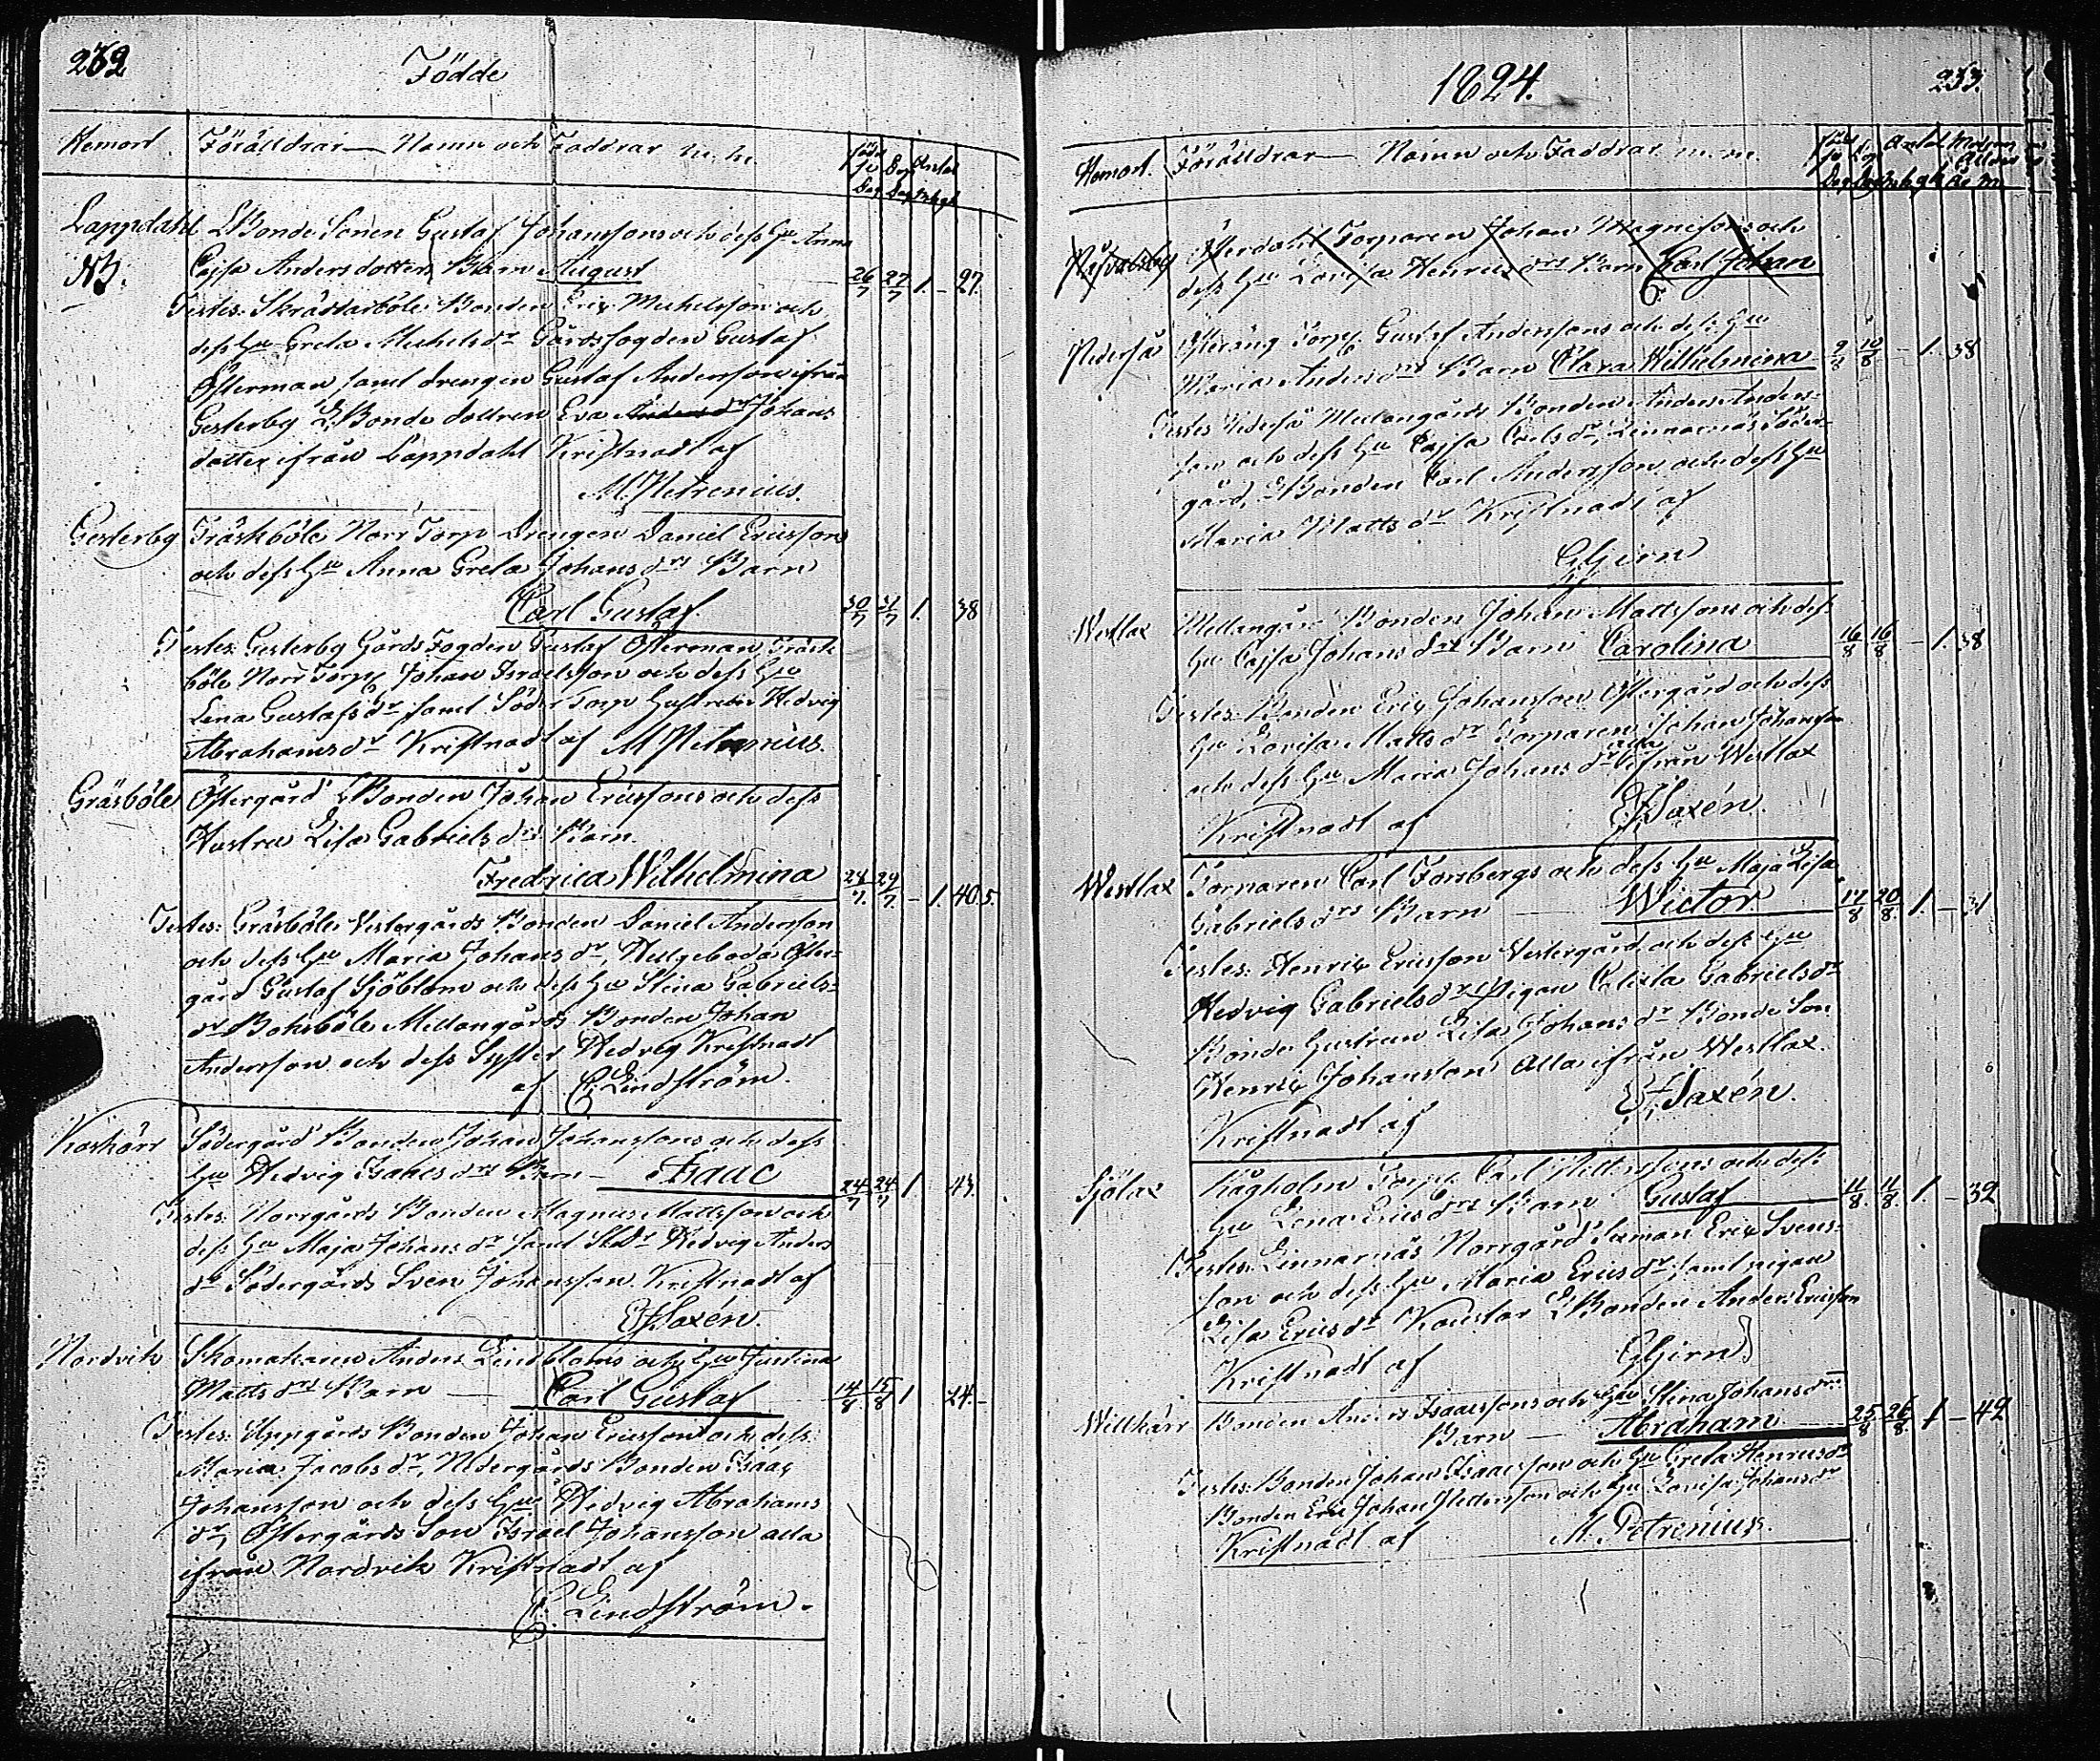 232
Födde
Hemort. Föräldrar — Namn och Faddrar m.m.
Lappdahl Bonde Sonen Gustaf Johanssons och dess Hu Anna
N3. Cajsa Andersdotters Barn August 26/7 27/7 1. – 27.
Testes: Skräddarböle Bonden Eric Michelsson och
dess Hu Greta Michelsdr Gårdsfogden Gustaf
Österman, samt drengen Gustaf Andersson ifrån
Gesterby Bonde dottren Eva Andersdr Johans
dotter ifrån Lappdahl Kristnadt af
M. Petrenius.
Gesterby Träskböle Norr Torp Drengen Daniel Ericssons
och dess Hu Anna Greta Johansdrs Barn
Carl Gustaf. 30/7 31/7 1. 38
Testes: Gesterby Gårds Fogden Gustaf Österman, Träsk
böle Norr Torp Johan Israelsson och dess Hu
Lena Gustafsdr samt Söder Torp Hustrun Hedvig
Abrahamsdr Kristnadt af M. Petrenius.
Gräsböle Östergård Bonden Johan Ericssons och dess
Hustru Lisa Gabrielsdrs Barn
Fredrica Wilhelmina 28/7 29/7 – 1. 40. 5.
Testes: Gräsböle Vestergårds Bonden Daniel Andersson
och dess Hu Maria Johansdr, Helgeboda Öster-
gård Gustaf Sjöblom och dess Hu Stina Gabriels-
dr Bohlsböle Mellangårds Bonden Johan
Andersson och dess Syster Hedvig Kristnadt
af C. Lindström.
Koskärr Södergård Bonden Johan Johanssons och dess
Hu Hedvig Isaacsdrs Barn – Isaac 24/7 24/7 1. 43.
Testes: Norrgårds Bonden Magnus Mattsson och
dess Hu Maja Johansdr samt Hedvig Anders
dr Södergårds Sven Johansson Kristnadt af
E. Saxén.
Nordvik Skomakaren Anders Lindbloms och Hu Justina
Mattsdrs Barn — Carl Gustaf 14/8 15/8 1 24. –
Testes: Uppgårds Bonden Johan Ericsson och dess
Maria Jacobsdr, Nedergårds Bonden Isaac
Johansson och dess Hu Hedvig Abrahams
dr, Östergårds Son Israel Johansson alla
ifrån Nordvik Kristnadt af
C. Lindström.
1824.
233.
Hemort. Föräldrar — Namn och Faddrar m.m.
Österdahl Torparen Johan Magnussons och
dess Hu Lovisa Henricsdrs Barn Carl Johan
Pederså Österäng Torp. Gustaf Anderssons och dess Hu
Maria Andersdrs Barn Clara Wilhelmina 9/8 10/8 – 1. 38
Testes Pederså Mellangårds Bonden Anders Anders-
son och dess Hu Cajsa Carlsdr, Linnarnäs Söder-
gård, Bonden Carl Andersson och dess Hu
Maria Mattsdr Kristnadt af
G. Hjern
Westlax Mellangård Bonden Johan Mattssons och dess
Hu Cajsa Johansdrs Barn Carolina 16/8 16/8 – 1. 38
Testes: Bonden Eric Johansson Östergård och dess
Hu Lovisa Mattsdr Torparen Johan Johansson
och dess Hu Maria Johansdr alla ifrån Westlax
Kristnadt af E. Saxén.
Westlax Torparen Carl Forsbergs och dess Hu Maja Lisa
Gabrielsdrs Barn — Wictor 17/8 20/8. 1. – 31
Testes: Henric Ericsson Vestergård och dess Hu
Hedvig Gabrielsdr Pigan Calixta Gabrielsdr
Bonde Hustrun Lisa Johansdr Bonde Son
Henric Johansson Alla ifrån Westlax.
Kristnadt af E. Saxén.
Sjölax Kågholm Torp. Carl Pettersson och dess
Hu Lena Ericsdrs Barn Gustaf 11/8. 11/8. 1. – 32
Testes: Linnarnäs Norrgård Eric Svens-
son och dess Hu Maria Ericsdr, samt pigan
Lisa Ericsdr Bonden Anders Ericsson
Kristnadt af G. Hjern
Willkärr Bonden Anders Isaacssons och Hu Stina Johansdrs
Barn — Abraham 25/8 26/8. 1 – 42
Testes: Bonden Johan Isaacsson och Hu Greta Henricsdr
Bonden Johan Pettersson och Hu Lovisa Johansdr
Kristnadt af M. Petrenius.